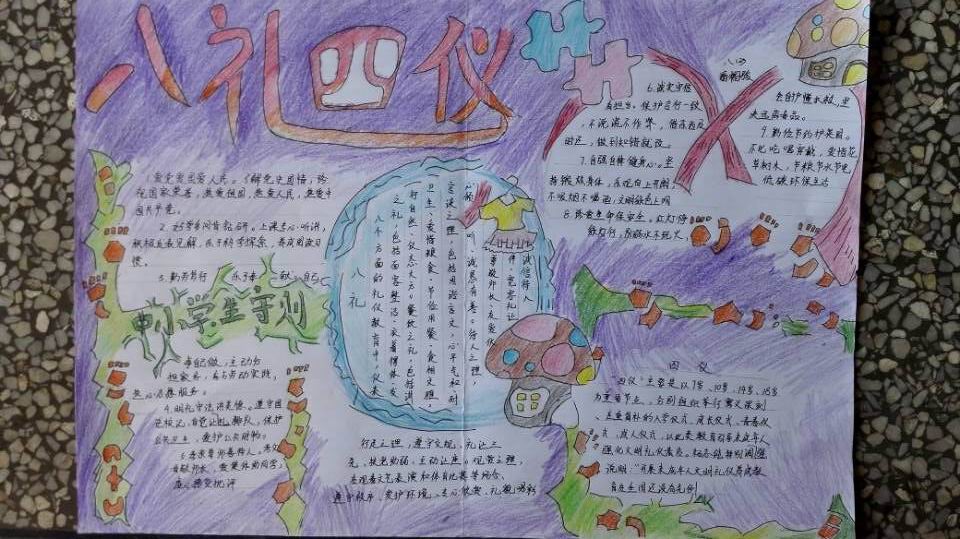 八礼四仪
爱党爱国爱人民。了解党史国情，珍
视国家荣誉，热爱祖国，热爱人民，热爱中
国共产党。
2. 好学多问肯钻研。上课专心听讲，
积极发表见解，乐于科学探索，养成阅读习
惯。
3. 勤劳笃行乐奉献。自己
中小学生守则
事自己做，主动分
担家务，参与劳动实践，
热心志愿服务。
4. 明礼守法讲美德。遵守国
法校纪，自觉礼让排队，保持
公共卫生，爱护公共财物。
5. 孝亲尊师善待人。孝父
母敬师长，爱集体助同学，
虚心接受批评
八礼
八个方面的礼仪教育中，仪表
之礼，包括面容整洁、衣着得体、发
型自然、仪态大方。餐饮之礼，包括讲
卫生、爱惜粮食、节俭用餐、食相文雅。
言谈之礼，包括用语文文、心平气和、耐
心倾听、诚恳友善。待人之礼，
事敬师长、友爱伙
伴、宽容礼让、
诚信待人
行走之礼，遵守交规、礼让三
先、扶老助弱、主动让座。观赏之礼，
在观看文艺表演和体育比赛等场合，
遵守秩序、爱护环境、专心欣赏、礼貌喝彩
八四
6. 诚实守信
有担当。保持言行一致
，不说谎不作弊，借东西及
时还，做到知错就改。
7. 自强自律健身心。坚
持锻炼身体，乐观向上开朗，
不吸烟不喝酒，文明绿色上网
8. 珍爱生命保安全。红灯停
绿灯行，防溺水不玩火，
会自护懂求救，坚
决远离毒品。
9. 勤俭节约护家园。
不比吃喝穿戴，爱惜花
草树木，节粮节水节电，
低碳环保生活
四仪
四仪"主要是以7岁、10岁、14岁、18岁
为重要节点，分别组织举行寓义深刻
、庄重简朴的入学仪式、成长仪式、青春仪
式、成人仪式，以此来教育引导未成年人
强化文明礼仪素养。
说明：